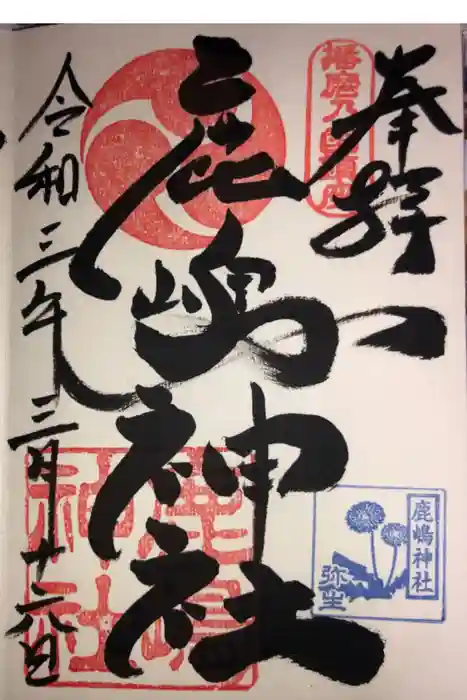 奉拝
播磨乃国
鹿嶋神社
令和三年三月十六日
鹿嶋
神社
鹿嶋神社
弥生